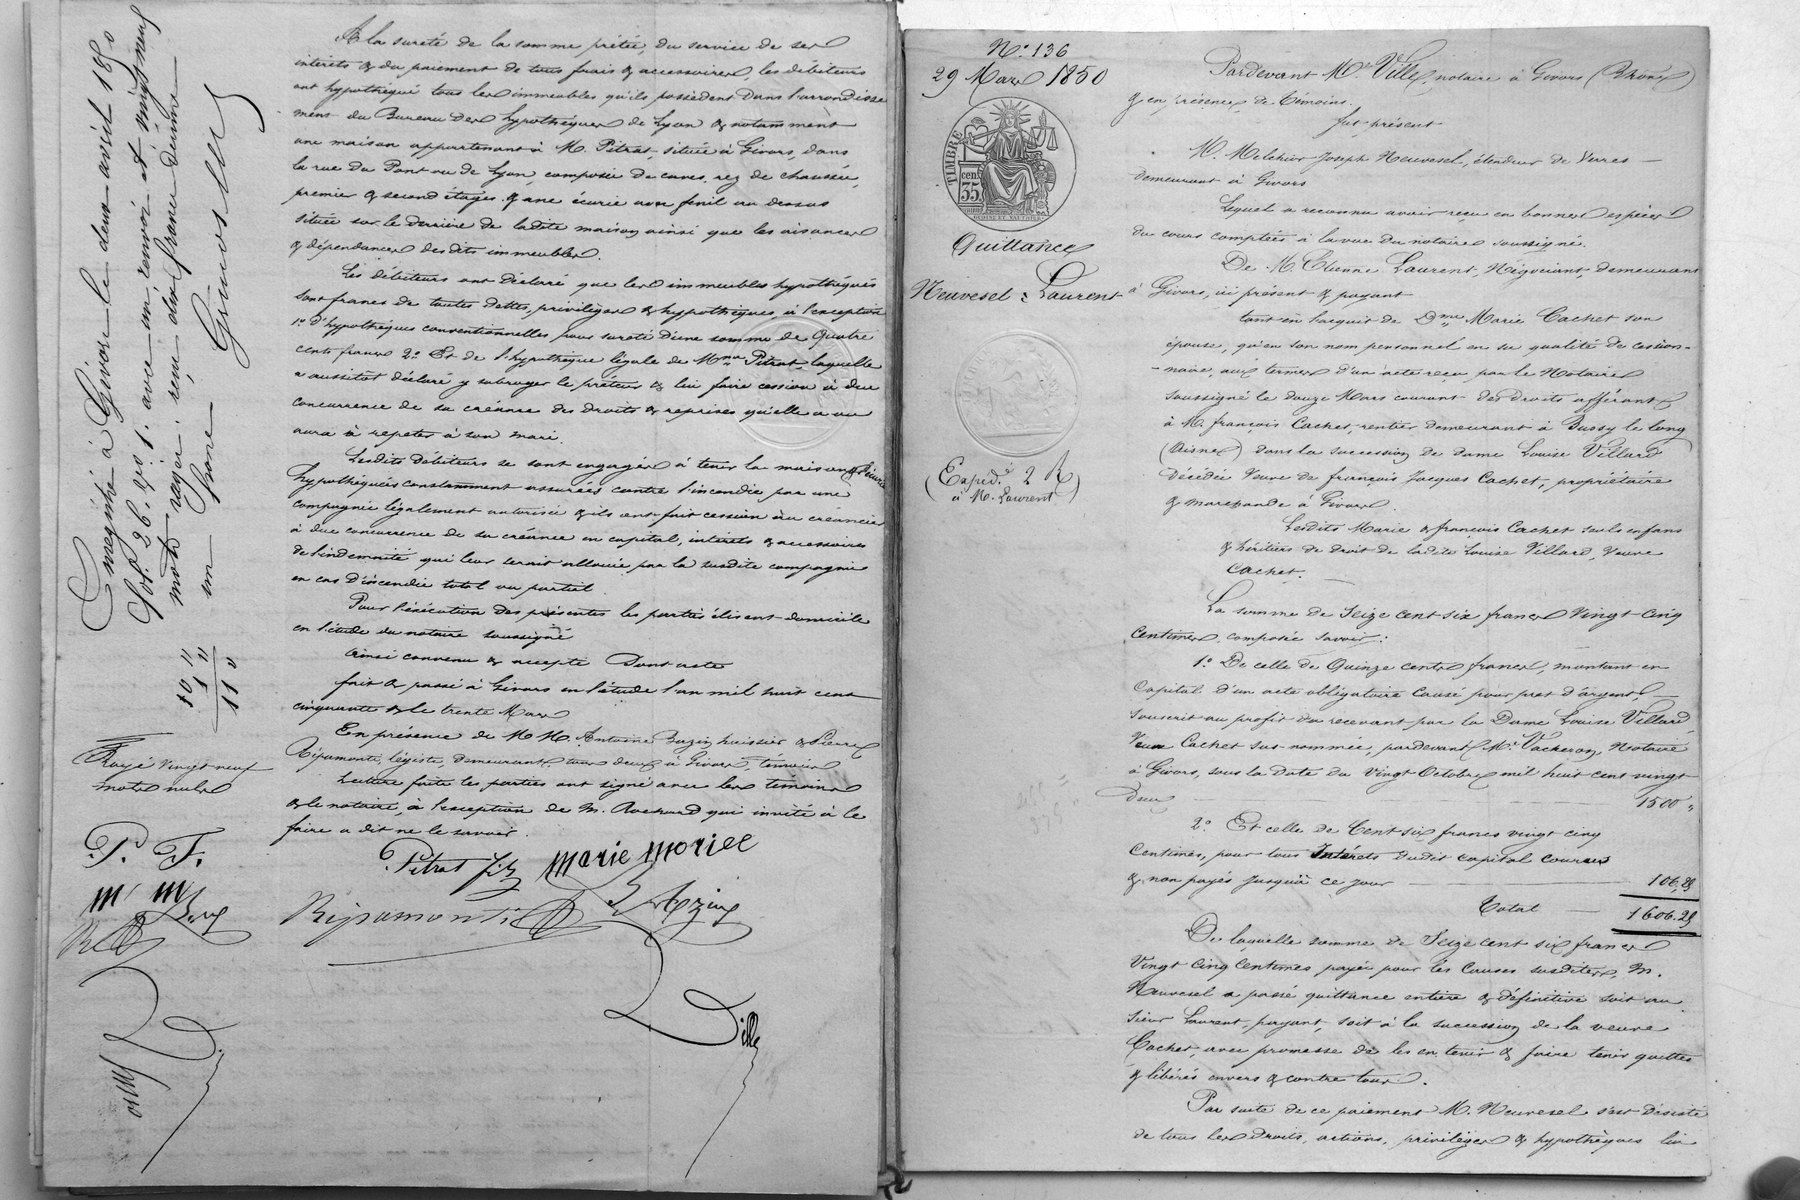 A la sureté de la somme prêtée, du service de ses
intérêts & du paiement de tous frais & accessoires, les débiteurs
ont hypothéqué tous les immeubles qu'ils possèdent dans l'arrondisse
ment du Bureau des hypothèques de Lyon & notamment
une maison appartenant à M. Pitrat, située à Givors, dans
la rue du Pont ou de Lyon, composée de caves, rez de chaussée,
premier & second étages, & une écurie avec fenil au dessus
située sur le derrière de ladite maison ainsi que les aisances
& dépendances desdits immeubles.
Les débiteurs ont déclaré que les immeubles hypothéqués
sont francs de toutes dettes, privilèges & hypothèques, à l'exception
1.° d'hypothèques conventionnelles pour sureté d'une somme de Quatre
cents francs 2.° Et de l'hypothèque légale de Mme Pitrat, laquelle
a aussitôt déclaré y subroger le prêteur & lui faire cession à due
concurrence de sa créance des droits & reprises qu'elle a ou
aura à repeter à son mari.
Lesdits débiteurs se sont engagés à tenir la maison & l'écurie
hypothéqués constamment assurées contre l'incendie par une
compagnie légalement autorisée & ils ont fait cession au créancier
à due concurrence de sa créance en capital, intérêts & accessoires
de l'indemnité qui leur serait allouée par la susdite compagnie
en cas d'incendie total ou partiel.
Pour l'exécution des présentes les parties élisent domicile
en l'étude du notaire soussigné
Ainsi convenu & accepté Dont acte
fait & passé à Givors en l'étude l'an mil huit cent
cinquante & le trente Mars
En présence de M M. Antoine Bazin huissier & Pierre
Ripamonti, légiste, demeurant tous deux à Givors, témoins
Lecture faite les parties ont signé avec les témoins
& le notaire, à l'exception de M. qui invité à le
faire a dit ne le savoir.
Pitrat fils Marie Moriel
Ripamonti Bazin
Ville
Enregistré à Givors le deux avril 1850
fol. 26. Vo. 1. avec un renvoi et vingt neuf
mots rayés. reçu dix francs décime
un franc
10 "
1 "
11 "
Rayé vingt neuf
mots nuls
P. F.
M M
N.° 136
29 Mars 1850
TIMBRE
35 cent
Quittance
Neuvesel à Laurent
(Expéd.é 2 R
à M. Laurent)
Pardevant M.e Ville, notaire à Givors (Rhône)
& en présence de témoins.
fut présent
M. Melchior Joseph Neuvesel, étendeur de Verres
demeurant à Givors
Lequel a reconnu avoir reçu en bonnes espèces
du cours comptées à la vue du notaire soussigné.
De M. Etienne Laurent, Négociant, demeurant
à Givors, ici présent & payant
tant en l'acquit de Dme Marie Cachet son
épouse, qu'en son nom personnel en sa qualité de cession-
-naire, aux termes d'un acte reçu par le Notaire
soussigné le douze Mars courant des droits afférant
à M. françois Cachet, rentier demeurant à Bussy le long
(Aisne) dans la succession de dame Louise Villard
décédée Veuve de françois Jacques Cachet, propriétaire
& marchande à Givors.
Lesdits Marie & françois Cachet seuls enfans
& héritiers de droit de ladite Louise Villard, Veuve
Cachet.
La somme de Seize cent six francs Vingt cinq
Centimes, composée savoir:
1.° De celle de Quinze cents francs, montant en
Capital d'un acte obligatoire causé pour prêt d'argent
souscrit au profit du recevant par la Dame Louise Villard
Veuve Cachet sus nommée, pardevant M.e Vacheron, Notaire
à Givors, sous la date du Vingt Octobre mil huit cent vingt
deux 1500 "
2.° Et celle de Cent six francs vingt cinq
Centimes, pour tous Intérêts dudit capital courus
& non payés jusqu'à ce jour 106,25
Total 1606.25
De laquelle somme de Seize cent six francs
Vingt cinq centimes payée pour les causes susdites, M.
Neuvesel a passé quittance entière & définitive soit au
sieur Laurent, payant, soit à la succession de la veuve
Cachet, avec promesse de les en tenir & faire tenir quittes
& libérés envers & contre tous.
Par suite de ce paiement M. Neuvesel s'est désisté
de tous les droits, actions, privilèges & hypothèques lui